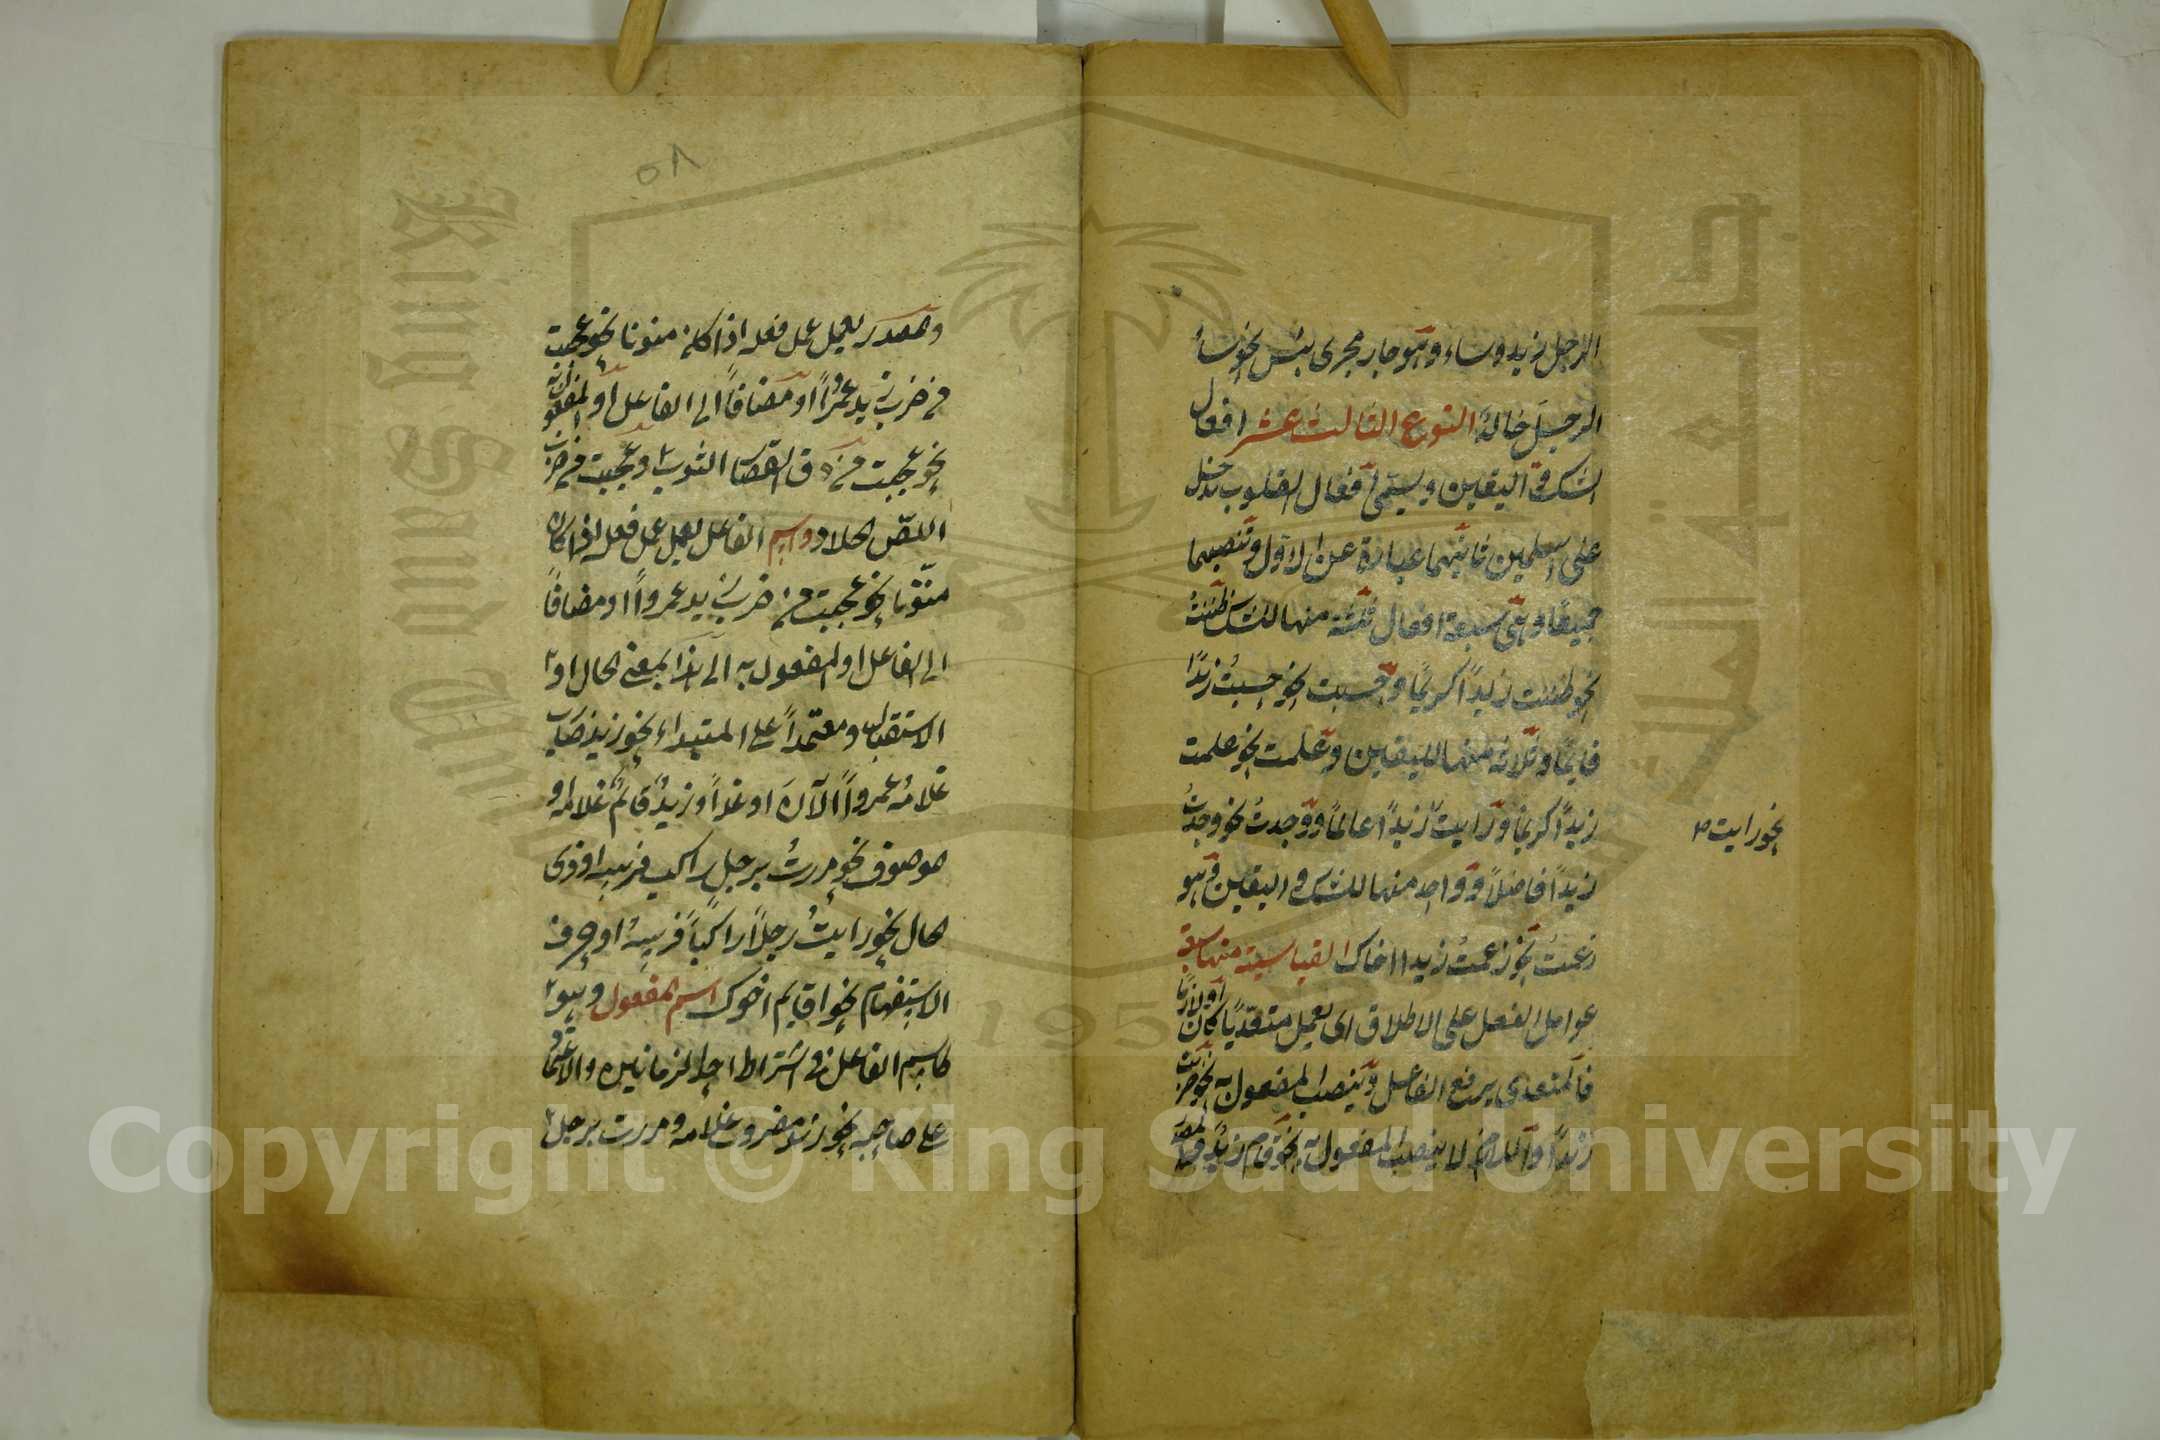 الرجل زيد وساء وهو جار مجرى بئس نحو ساء
الرجل خالد النوع الثالث عشر افعال
الشك و اليقين ويسمى افعال القلوب تدخل
على اسمين ثانيهما عبارة عن الاول وتنصبهما
جميعًا وهى سبعة افعال ثلثة منها للشك ظننتُ
نحو ظننت زيدًا كريمًا وحسبت نحو حسبت زيدًا
قايمًا وثلاثة منها لليقين وعلمت نحو علمت
زيدًا كريمًا ورايت زيدًا عالمًا ووجدتُ نحو وجدتُ
نحو رايت
زيدًا فاضلًا وواحد منها للشك و اليقين وهو
زعمتُ نحو زعمتُ زيدا اخاك القياسية منها سبعة
عوامل الفعل على الاطلاق اى يعمل متعديًا كان
او لازمًا
فالمتعدى يرفع الفاعل وينصب المفعول به نحو ضربت
زيدًا واللازم لا ينصب المفعول به نحو قام زيدٌ
والمصدر
٥٨
والمصدر يعمل عمل فعله اذا كان منونا نحو عجبت
من ضرب زيد عمرًوا او مضافًا الى الفاعل او المفعول به
نحو عجبت من دق القصار الثوب وعجبت من ضرب
اللصّ الجلاد واسم الفاعل يعمل عمل فعله اذا كان
منوّنا نحو عجبت من ضرب زيد عمرواً او مضافًا
الى الفاعل او المفعول به الى هذا بمعنى الحال او
الاستقبال ومعتمداً على المبتداء نحو زيد ضارب
غلامُه عمرواً الآن او غداً وزيدٌ قائمٌ غلامه او
موصوف نحو مررتُ برجل راكب فرسه او ذى
حال نحو رايتُ رجلاً راكباً فرسه او حرف
الاستفهام نحو اقايم اخوك اسم المفعول وهو
كاسم الفاعل فى اشتراط احد الزمانين والاعتماد
على صاحبه نحو زيد مضروب غلامه ومررت برجل
Copyright © King Saud University
King Saud University
جامعة الملك سعود
1957